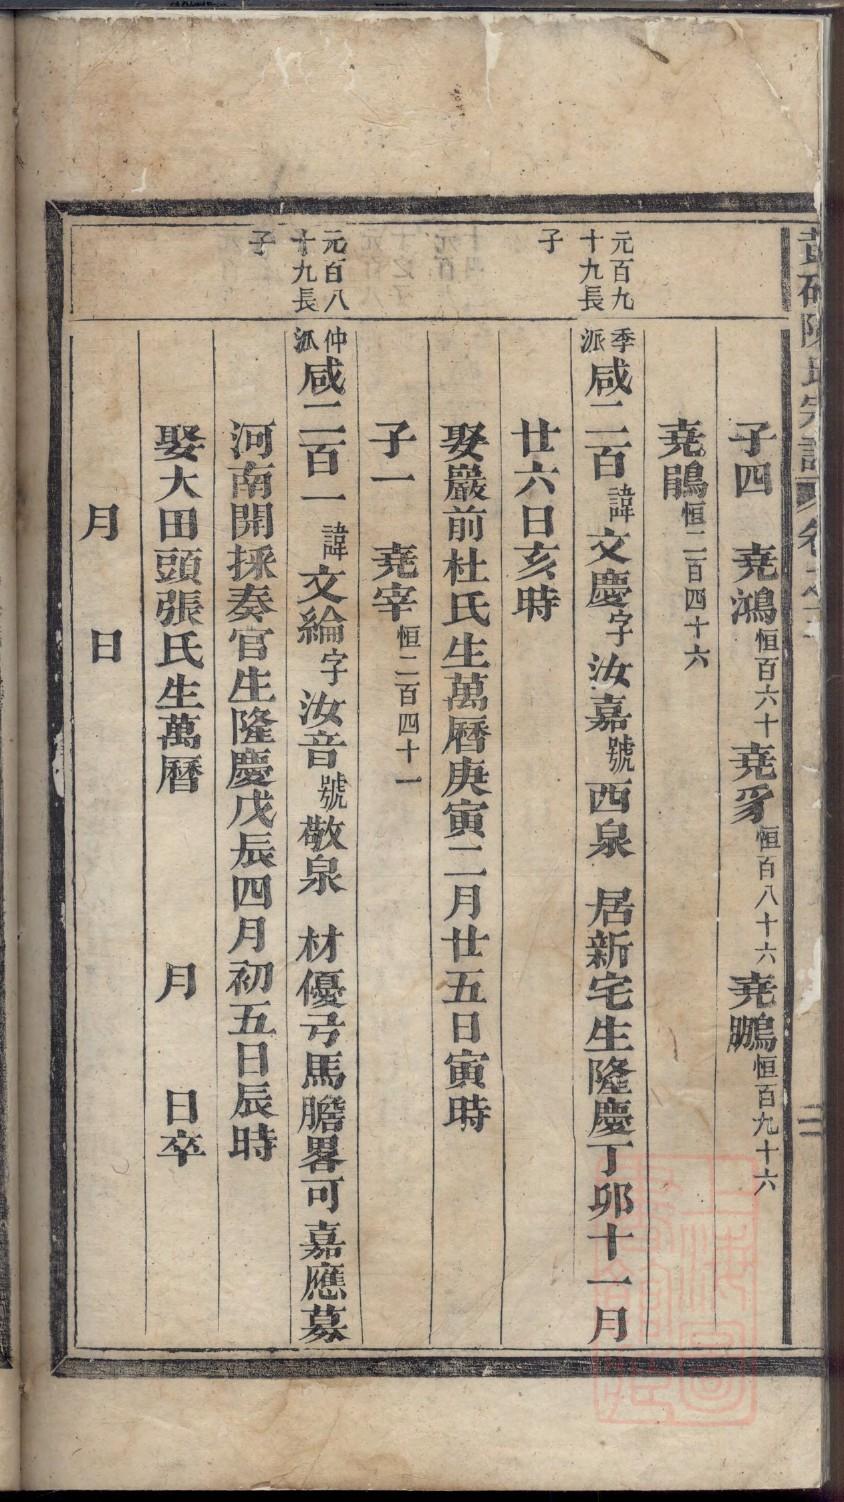 子四　堯鴻恒百六十堯豸恒百八十六堯鵬恒百九十六
堯鵑恒二百四十六
元百九十九長子
季派咸二百諱文慶字汝嘉號西泉　居新宅生隆慶丁卯十一月
廿六日亥時
娶嚴前杜氏生萬曆庚寅二月廿五日寅時
子一　堯宰恒二百四十一
元百八十九長子
仲派咸二百一諱文綸字汝音號敬泉　材優弓馬膽畧可嘉應募
河南開採奏官生隆慶戊辰四月初五日辰時
娶大田頭張氏生萬曆　月　日卒
月　日